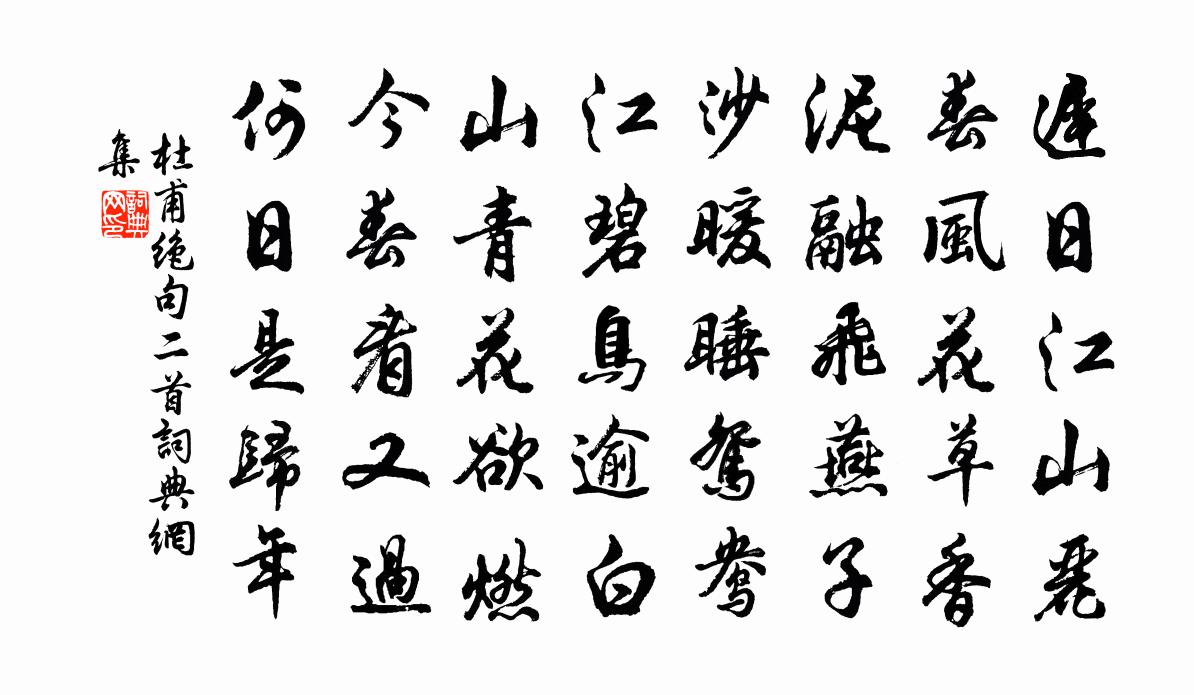 遲日江山麗
春風花草香
泥融飛燕子
沙暖睡鴛鴦
江碧鳥逾白
山青花欲燃
今春看又過
何日是歸年
杜甫絕句二首詞典網
集
詞典
网印